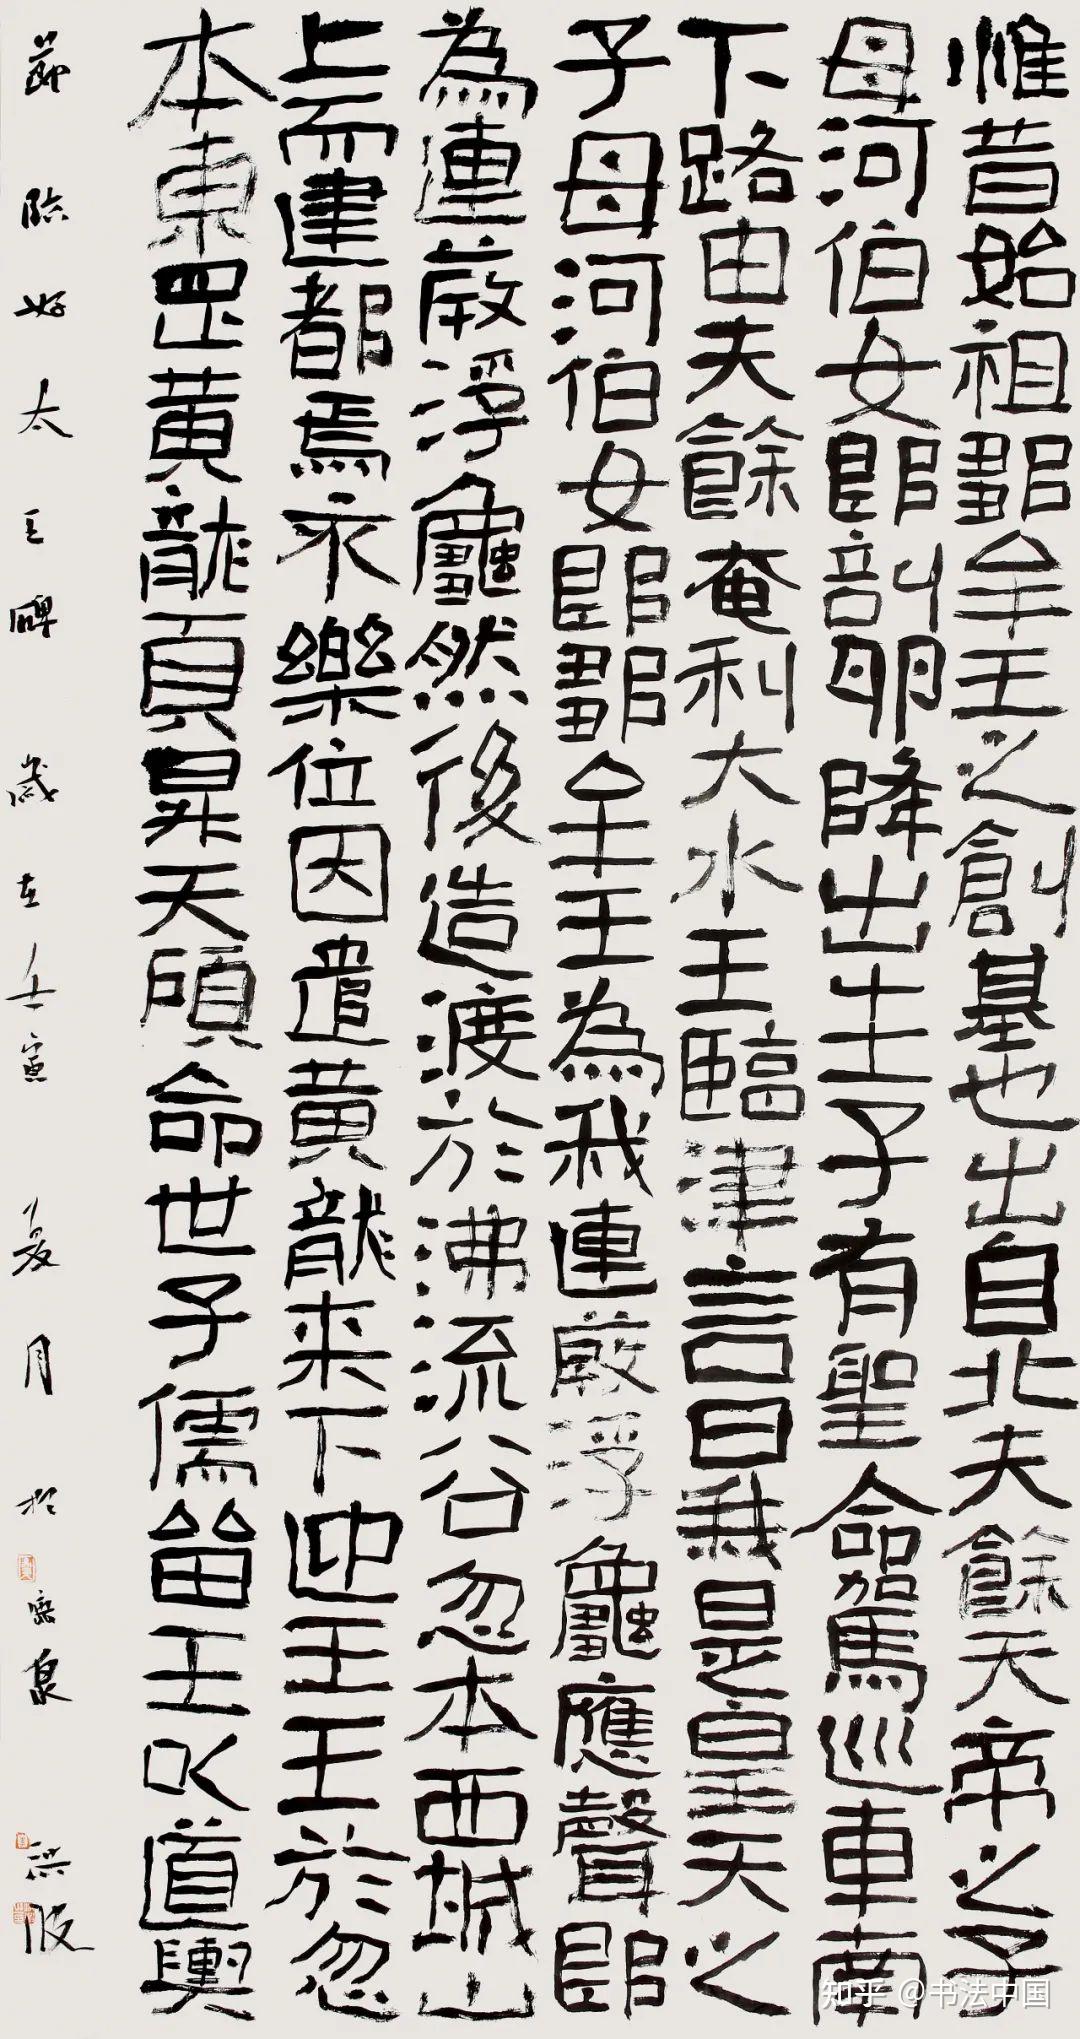 惟昔始祖鄒牟王之創基也出自北夫餘天帝之子
母河伯女郎剖卵降出生子有聖命駕巡車南
下路由夫餘奄利大水王臨津言曰我是皇天之
子母河伯女郎鄒牟王為我連葭浮龜應聲即
為連葭浮龜然後造渡於沸流谷忽本西城山
上而建都焉永樂位因遣黃龍來下迎王王於忽
本東罡黃龍負昇天顧命世子儒留王以道輿
節臨好太王碑歲在壬寅夏月於泉
知乎 @书法中国